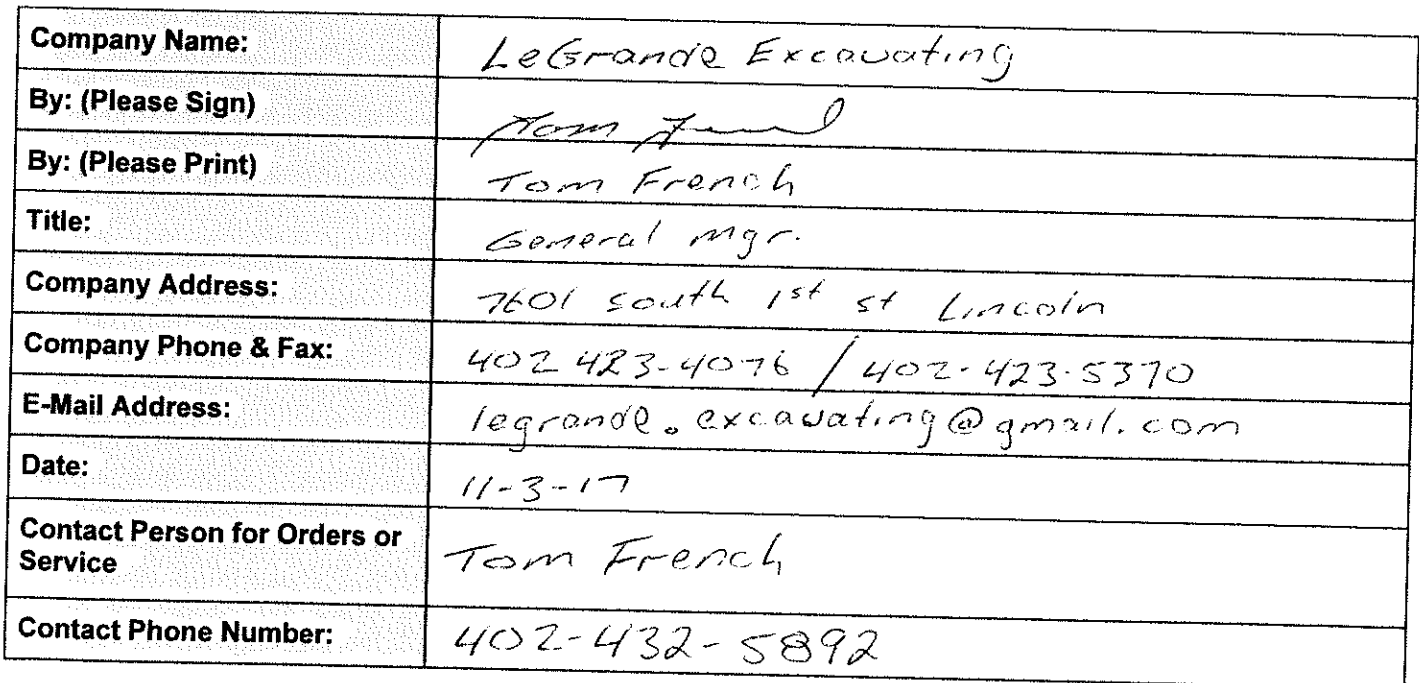 Company Name: LeGrande Excavating
By: (Please Sign) Tom French
By: (Please Print) Tom French
Title: General Mgr.
Company Address: 7601 South 1st St Lincoln
Company Phone & Fax: 402 423-4076 / 402-423-5370
E-Mail Address: legrande.excavating@gmail.com
Date: 11-3-17
Contact Person for Orders or
Service Tom French
Contact Phone Number: 402-432-5892